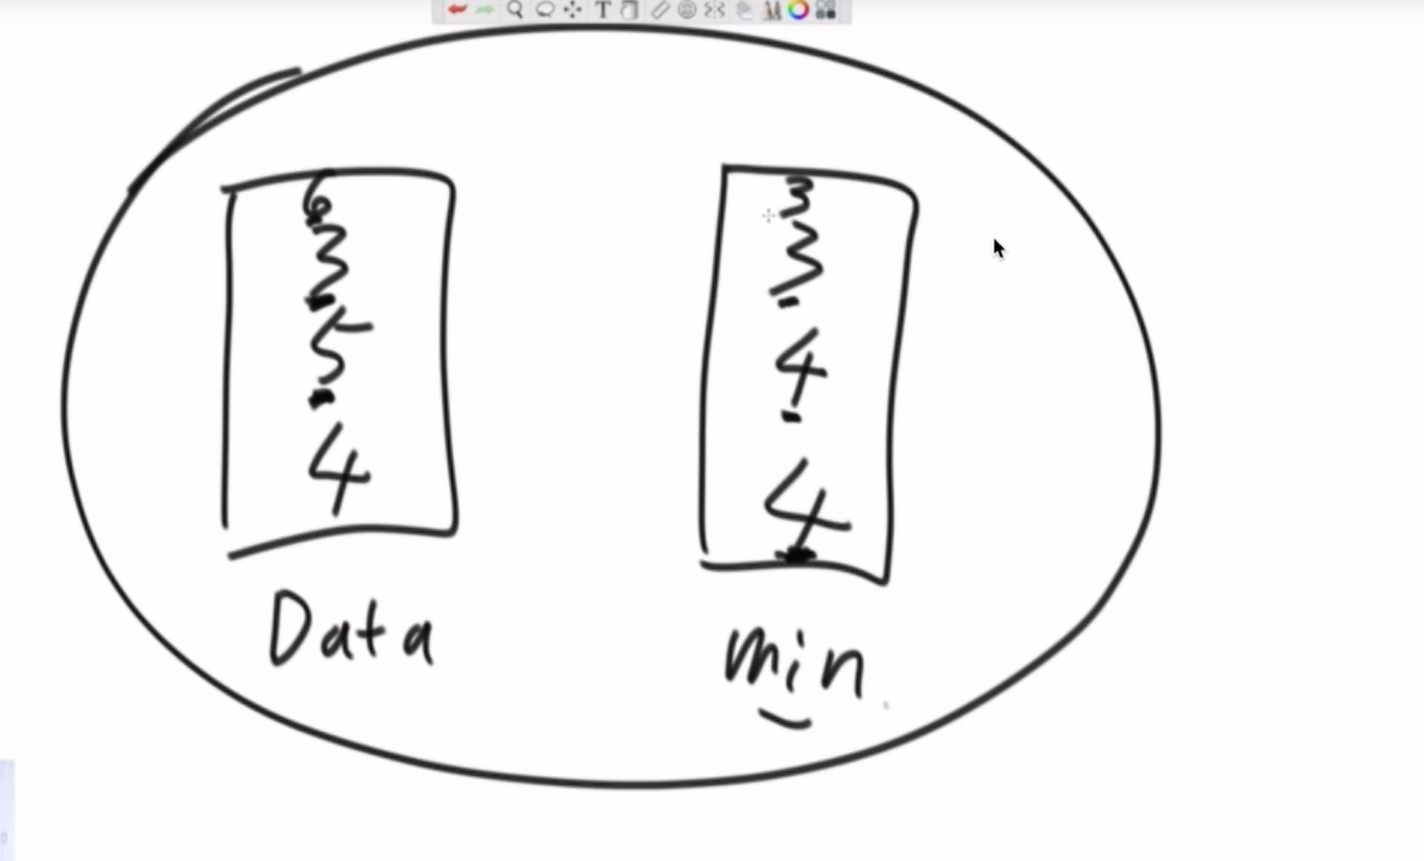 6
3
5
4
Data
3
3
4
4
min